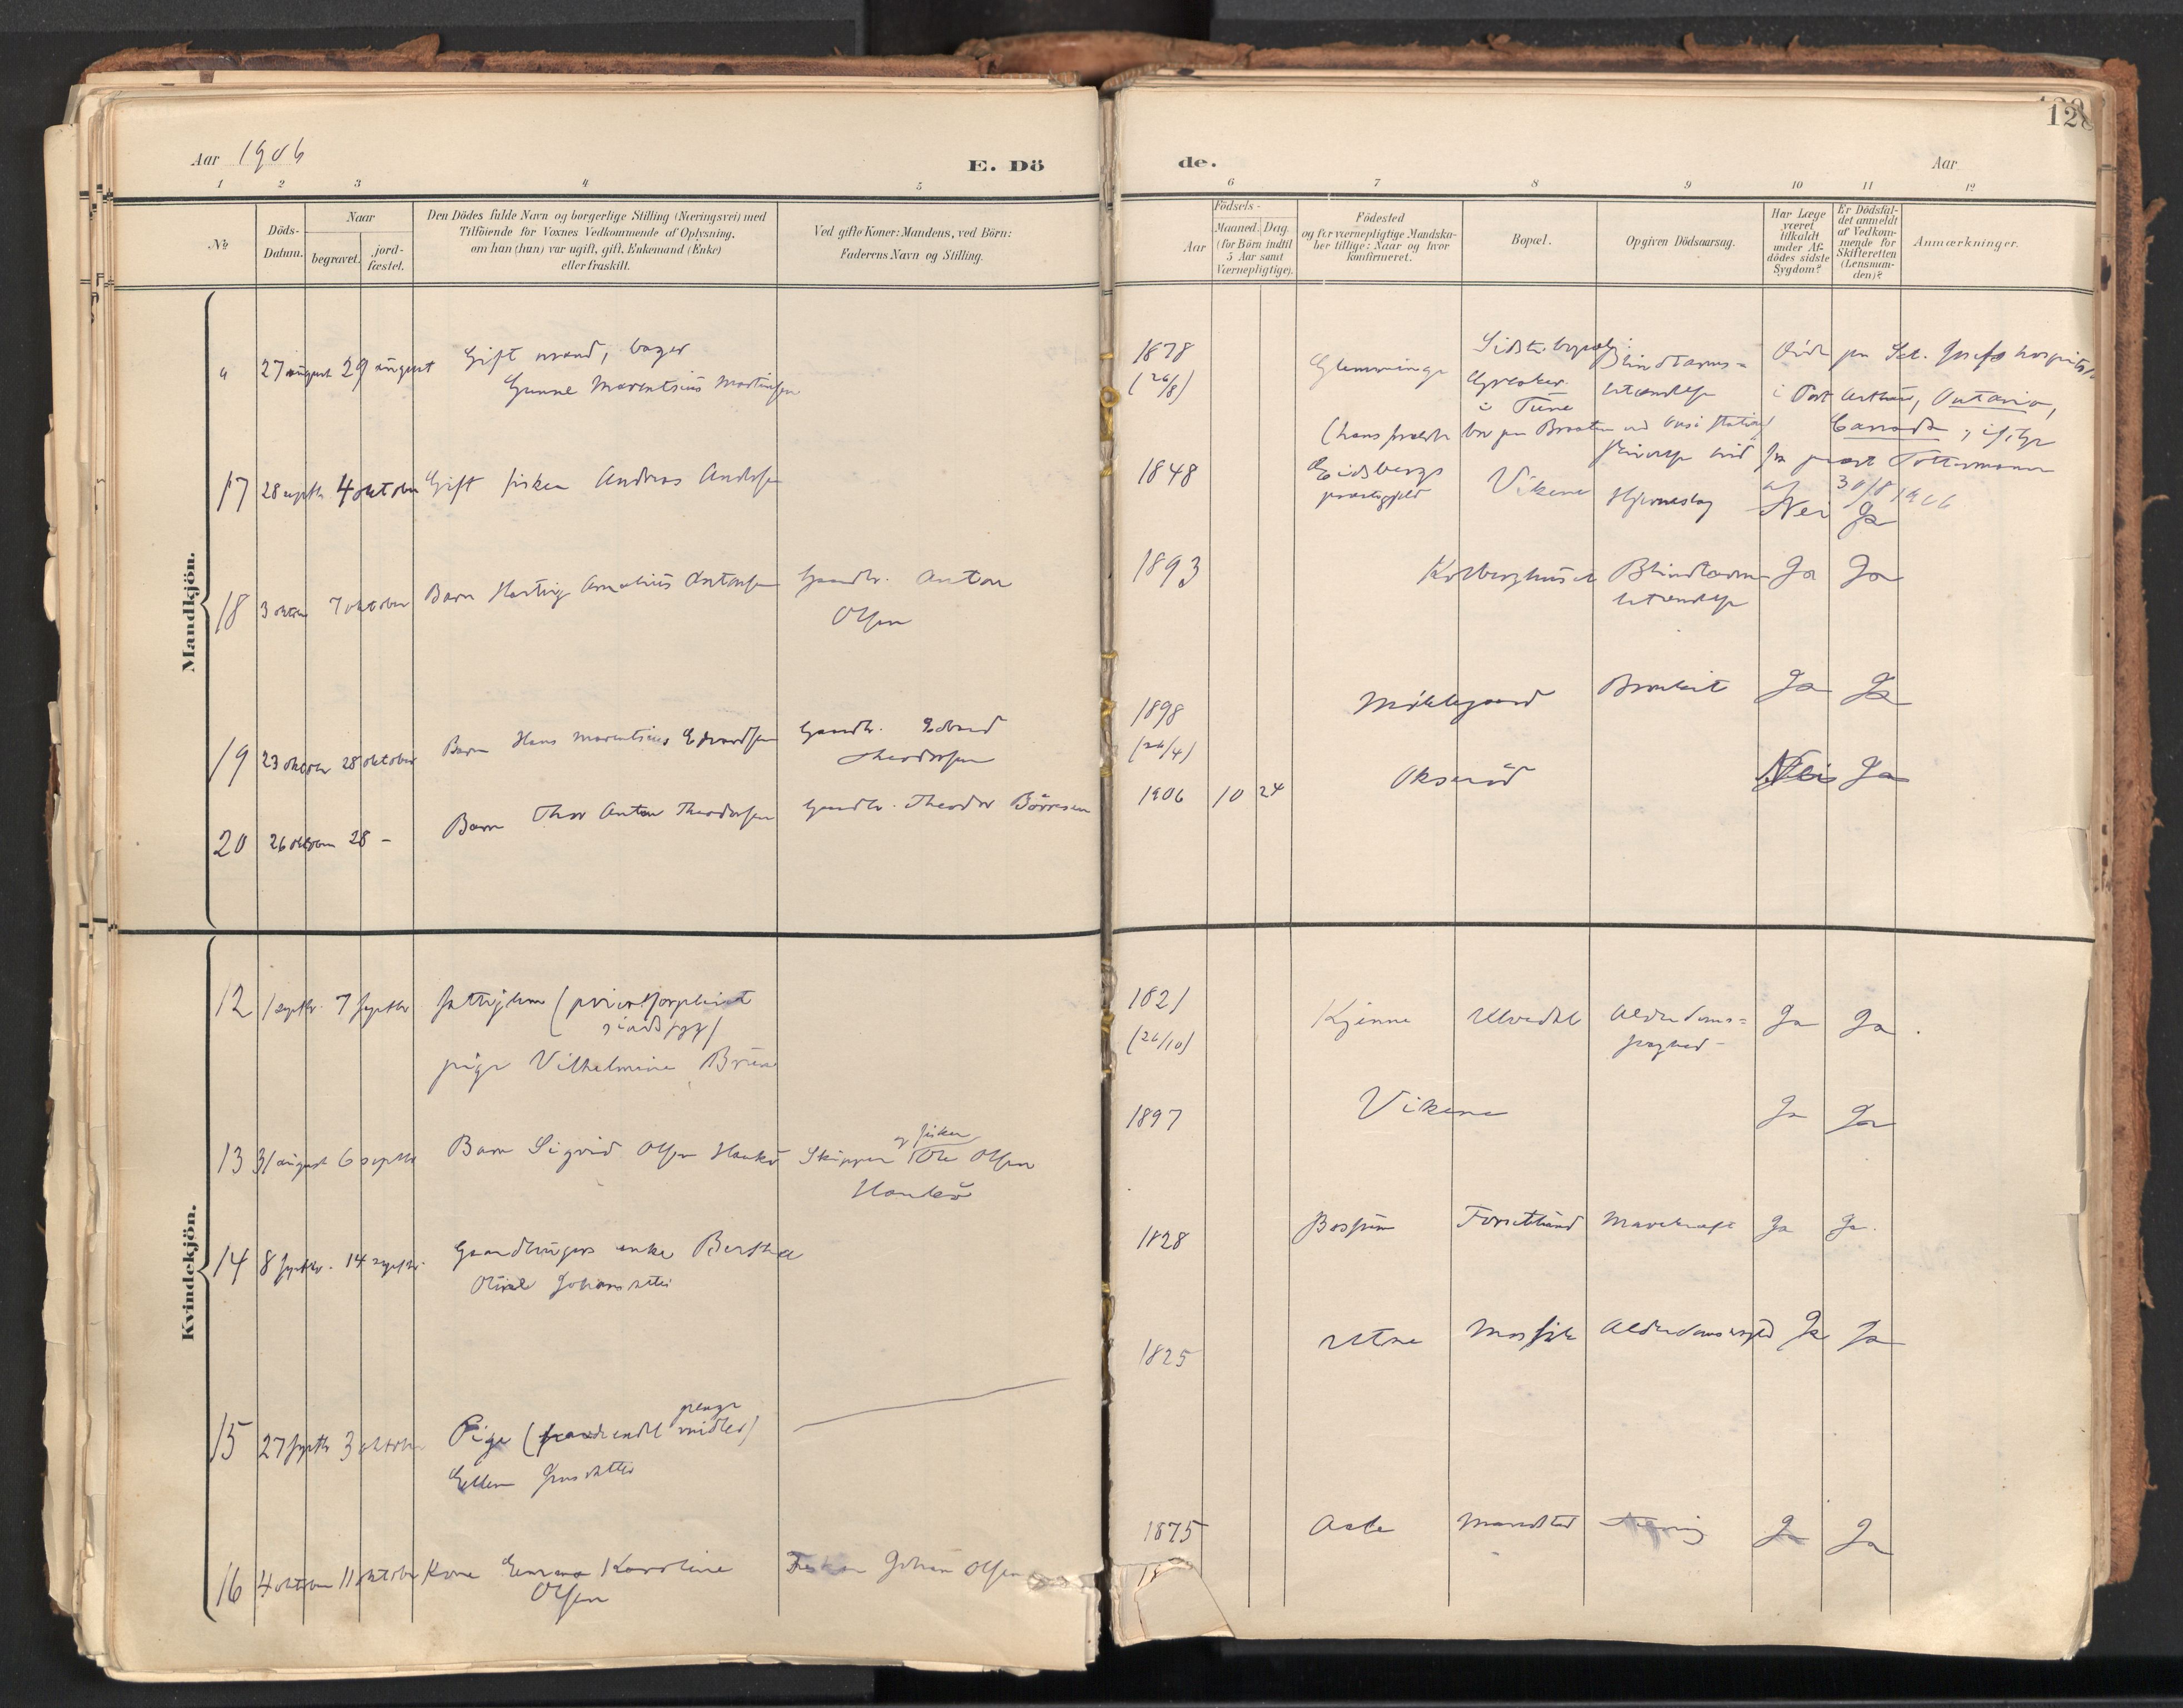 128
Aar 1906
E. Dö
de.
Aar
1 2 3 4 5 6 7 8 9 10 11 12
№
Döds-
Datum.
Naar
begravet.
jord-
fæstet.
Den Dödes fulde Navn og borgerlige Stilling (Næringsvei) med
Tilföiende for Voxnes Vedkommende af Oplysning,
om han (hun) var ugift, gift, Enkemand (Enke)
eller fraskilt.
Ved gifte Koner: Mandens, ved Börn:
Faderens Navn og Stilling.
Födsels-
Aar
Maaned. Dag.
(for Börn indtil
5 Aar samt
Værnepligtige).
Födested
og for værnepligtige Mandska-
ber tillige: Naar og hvor
konfirmeret.
Bopæl.
Opgiven Dödsaarsag.
Har Læge
været
tilkaldt
under Af-
dödes sidste
Sygdom?
Er Dödsfal-
det anmeldt
af Vedkom-
mende for
Skifteretten
(Lensman-
den)?
Anmærkninger.
Mandkjön.
" 27 august 29 august Gift mand, bager
Gunnel Marentsius Martinsen
1878
(26/8)
Glemminge
Sidste bopæl:
Greaker
i Tune
Blindtarms-
betændelse
Död paa Sct. Josefs hospital
i Port Arthur, Ontario,
Canada
17 28 septbr 4 oktober Gift fisker Andreas Andersen
1848
Eidsbergs
præstegjeld
Vikene
Hjerneslag
30/8 1906
Nei Ja
18 3 oktober 7 oktober Barn Hartvig Arnelius Antonsen
Gaardbr. Anton
Olsen
1893
Kolberghuset
Blindtarms
betændelse
Ja Ja
19 23 oktober 28 oktober Barn Hans Marentsius Edvardsen
Gaardbr. Edvard
Theodorsen
1898
(26/4)
Mörkegaard
Bronkit
Ja Ja
20 26 oktober 28 - Barn Thor Anton Theodorsen
Gaardbr. Theodor Börresen
1906 10 24
Okseröd
Nei Ja
Kvindekjön.
12 1 septbr. 7 septbr fattiglem (privat forpleiet
sindssyg)
pige Vilhelmine Brun
1821
(26/10)
Kjenne
Ulvedal
Alderdoms-
svaghed
Ja Ja
13 31 august 6 septbr Barn Sigrid Olsen Hankö
Skipper og fisker Ole Olsen
Hankö
1897
Vikene
Ja Ja
14 8 septbr. 14 septbr. Gaardbrugers enke Bertha
Olive Johansdatter
1828
Forsetlund
Ja Ja
15 27 septbr 3 oktober Pige ( penge midler)
Ellen Jensdatter
1825
Utne
Ja Ja
16 4 oktober 11 oktober Kone Emma Karoline
Olsen
Fisker Johan Olsen
1875
Asle
Ja Ja